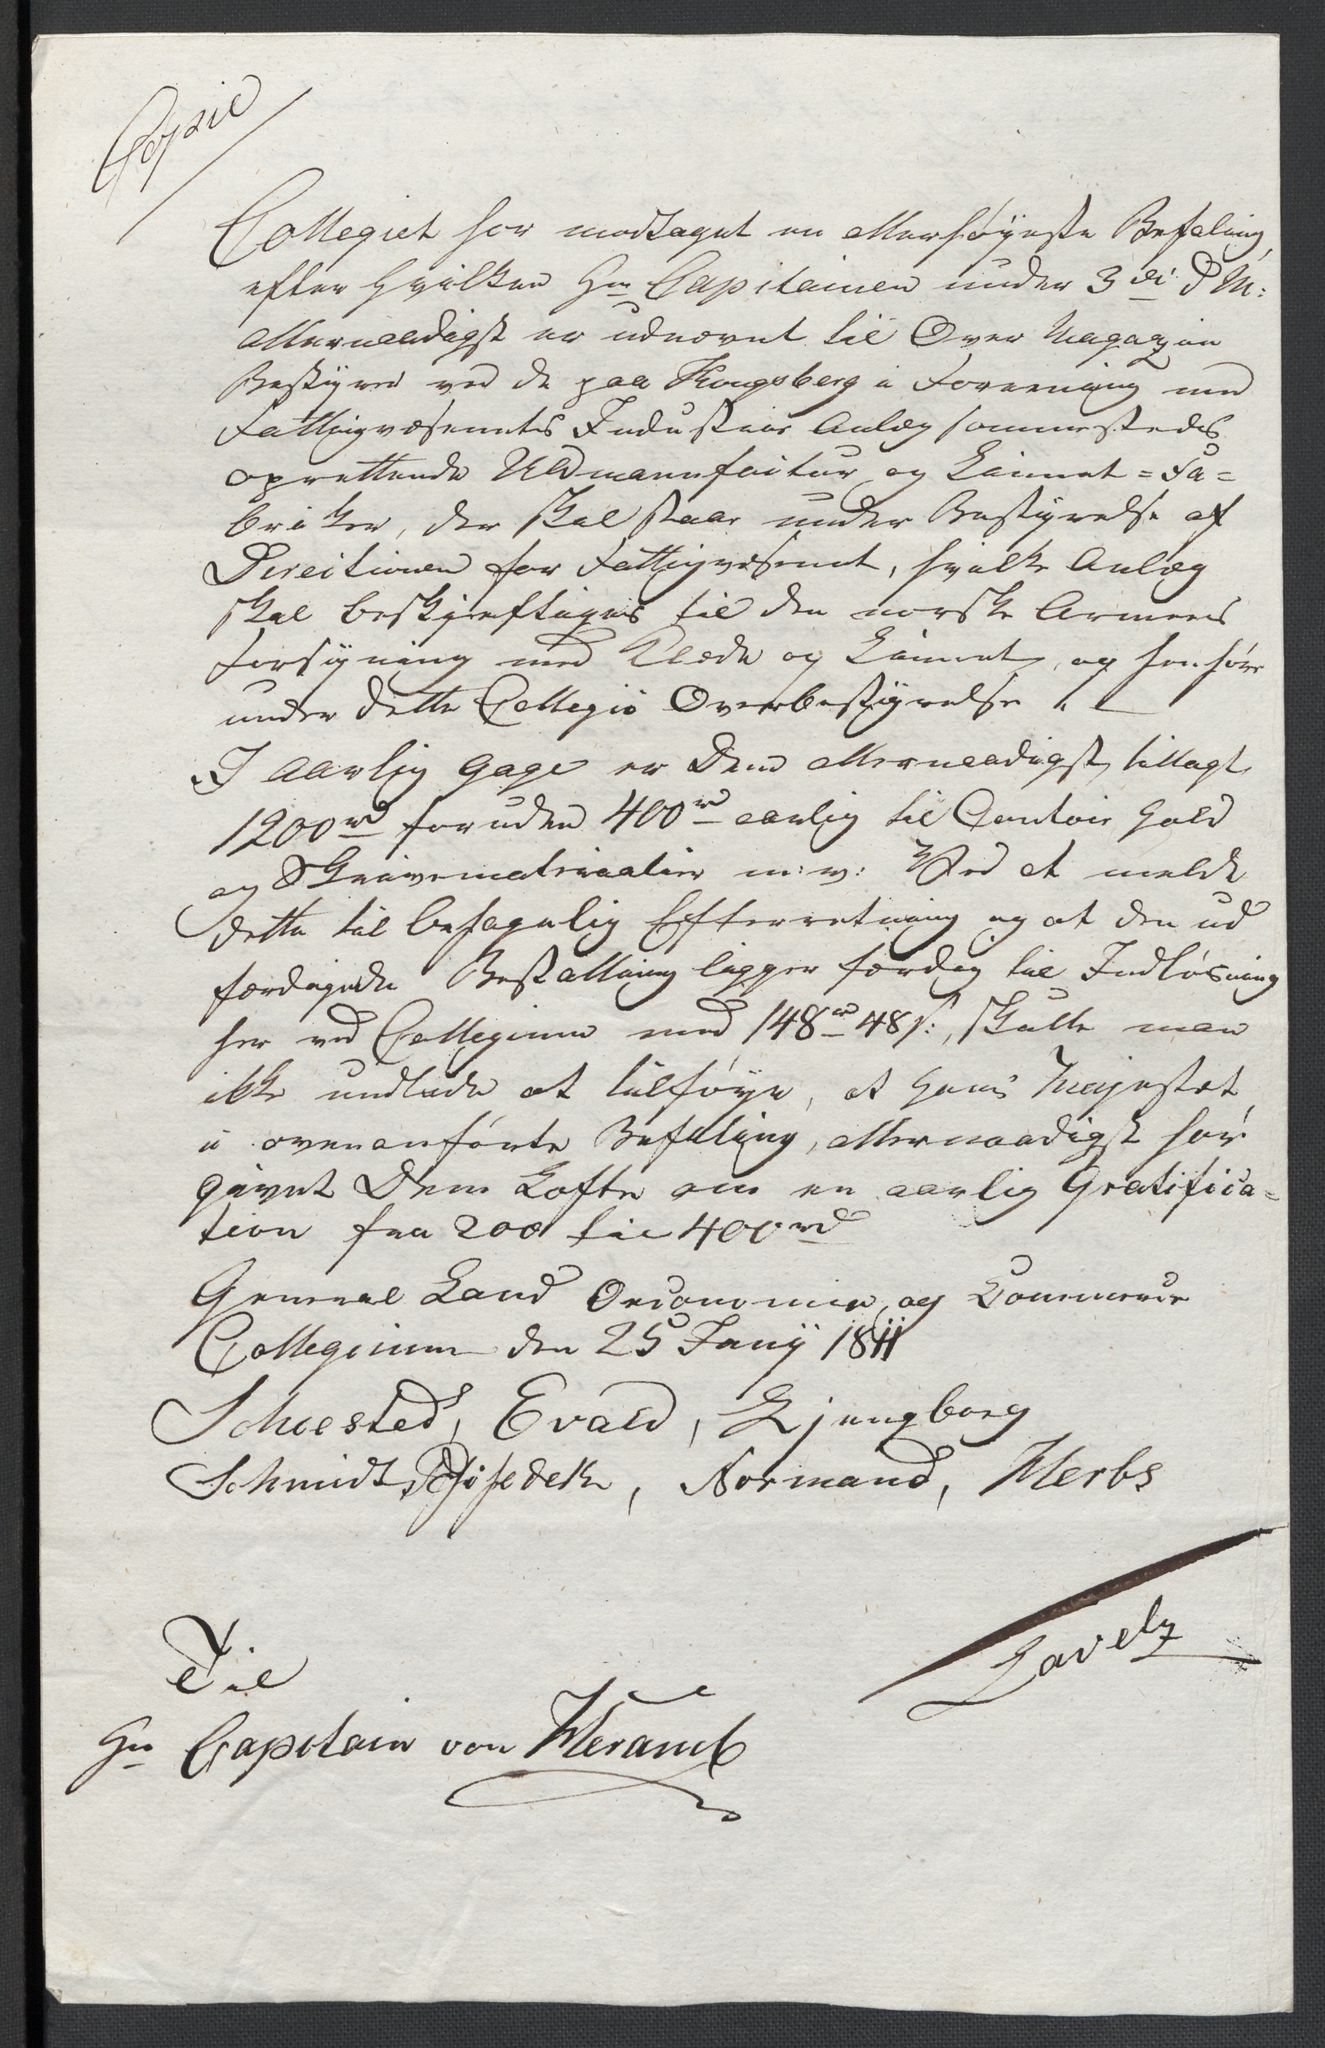 Copie
Collegiet har modtaget en allerhøyeste Befaling,
efter hvilken Hr Capitainen under 3die d M:
allernaadigst er udnævnt til Over Magazin
Bestyrer ved de paa Kongsberg i Forening med
Fattigvæsenets Industrie Anlæg sammesteds
oprettende Uldmanufactur og Linnet=Fa=
briker, der skal staae under Bestyrelse af
Directionen for Fattigvæsenet, hvilke Anlæg
skal beskjeftiges til den norske Armees
Forsyning med Klæde og Linnet, og henhøre
under dette Collegii Overbestyrelse.
I aarlig Gage er Dem allernaadigst tillagt
1200rd foruden 400rd aarlig til Contoir Hold
og Skrivematerialier m:v: Ved at melde
dette til behagelig Efterretning og at den ud
færdigede Bestalling ligger færdig til Indløsning
her ved Collegium med 148rd 48s:, skulle man
ikke undlade at tilføye, at Hans Majestet
i ovenanførte Befaling, allernaadigst har
givet Dem Løfte om en aarlig Gratifica=
tion fra 200 til 400rd
General Land Oeconomie og Commerce
Collegium den 25 Junij 1811
Sehested, Evald, Ljungberg
Schmidt Phiseldek, Normand, Klerbs
Lavetz
Til
Hr Capitain von Kleramb